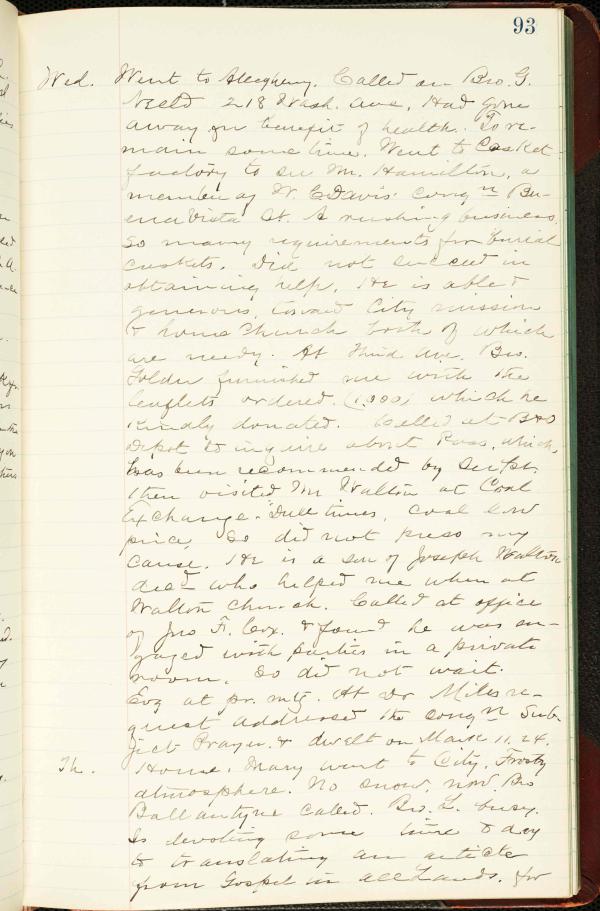 93
Wed. Went to Allegheny. Called on Bro. G.
Neeld 218 Wash. Ave. Had gone
away for benefit of health. To re-
main some time. Went to Casket
factory to see Mr. Hamilton, a
member of W. C Davis' congn Bu-
ena Vista St. A rushing business,
so many requirements for burial
caskets. Did not succeed in
obtaining help. He is able &
generous, toward City mission
& home Church both of which
are needy. At Third Ave. Bro.
Golder furnished me with the
leaflets ordered. (1,000) which he
kindly donated. Called at B&O
Depot to inquire about Pass, which
has been recommended by Supt.
Then visited Mr Walton at Coal
Exchange. Dull times, coal low
price so did not press my
cause. He is a son of Joseph Walton
decd who helped me when at
Walton church. Called at office
of Jno F. Cox. & found he was en-
gaged with parties in a private
room, so did not wait.
Evg at pr. mtg. At Dr Miles re-
quest addressed the congn Sub-
ject Prayer. & dwelt on Mark 11, 24.
Th. Home. Mary went to City. Frosty
atmosphere. No snow, now. Bro
Ballantyne called. Bro. L. busy.
Is devoting some time to day
to translating an article
from Gospel in all Lands. for